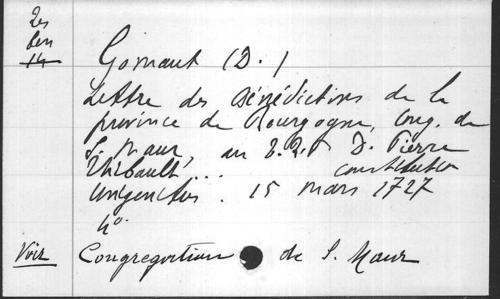 Res
Ben
14
Gomaut (D.)
Lettre des Bénédictins de la
province de Bourgogne, Cong. de
S. Maur, au T.R.P. D. Pierre
Thibault... constitution
Unigenitus. 15 mars 1727
4°
Voir Congregation de S. Maur